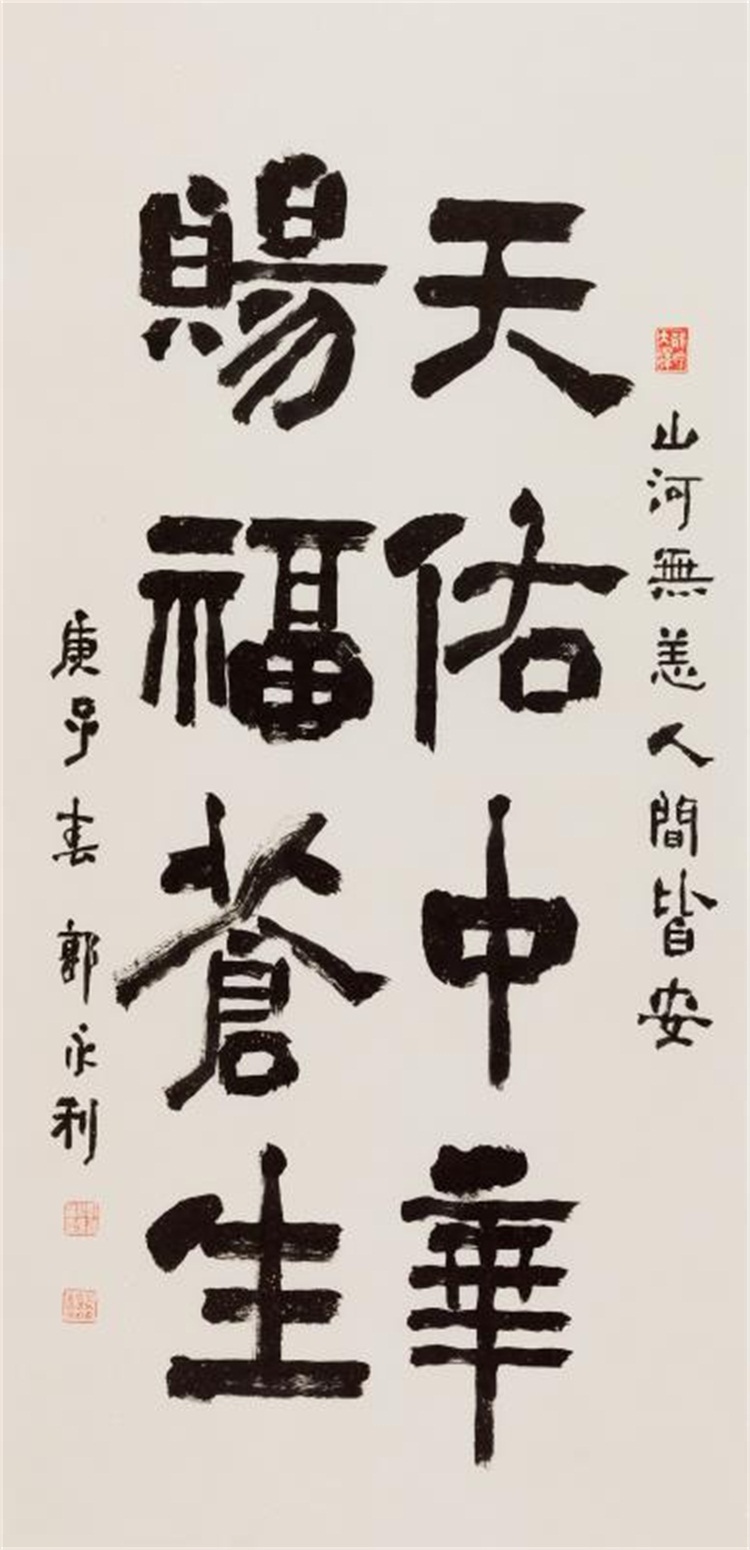 山河無恙人間皆安
天佑中華
賜福蒼生
庚子春郭永利